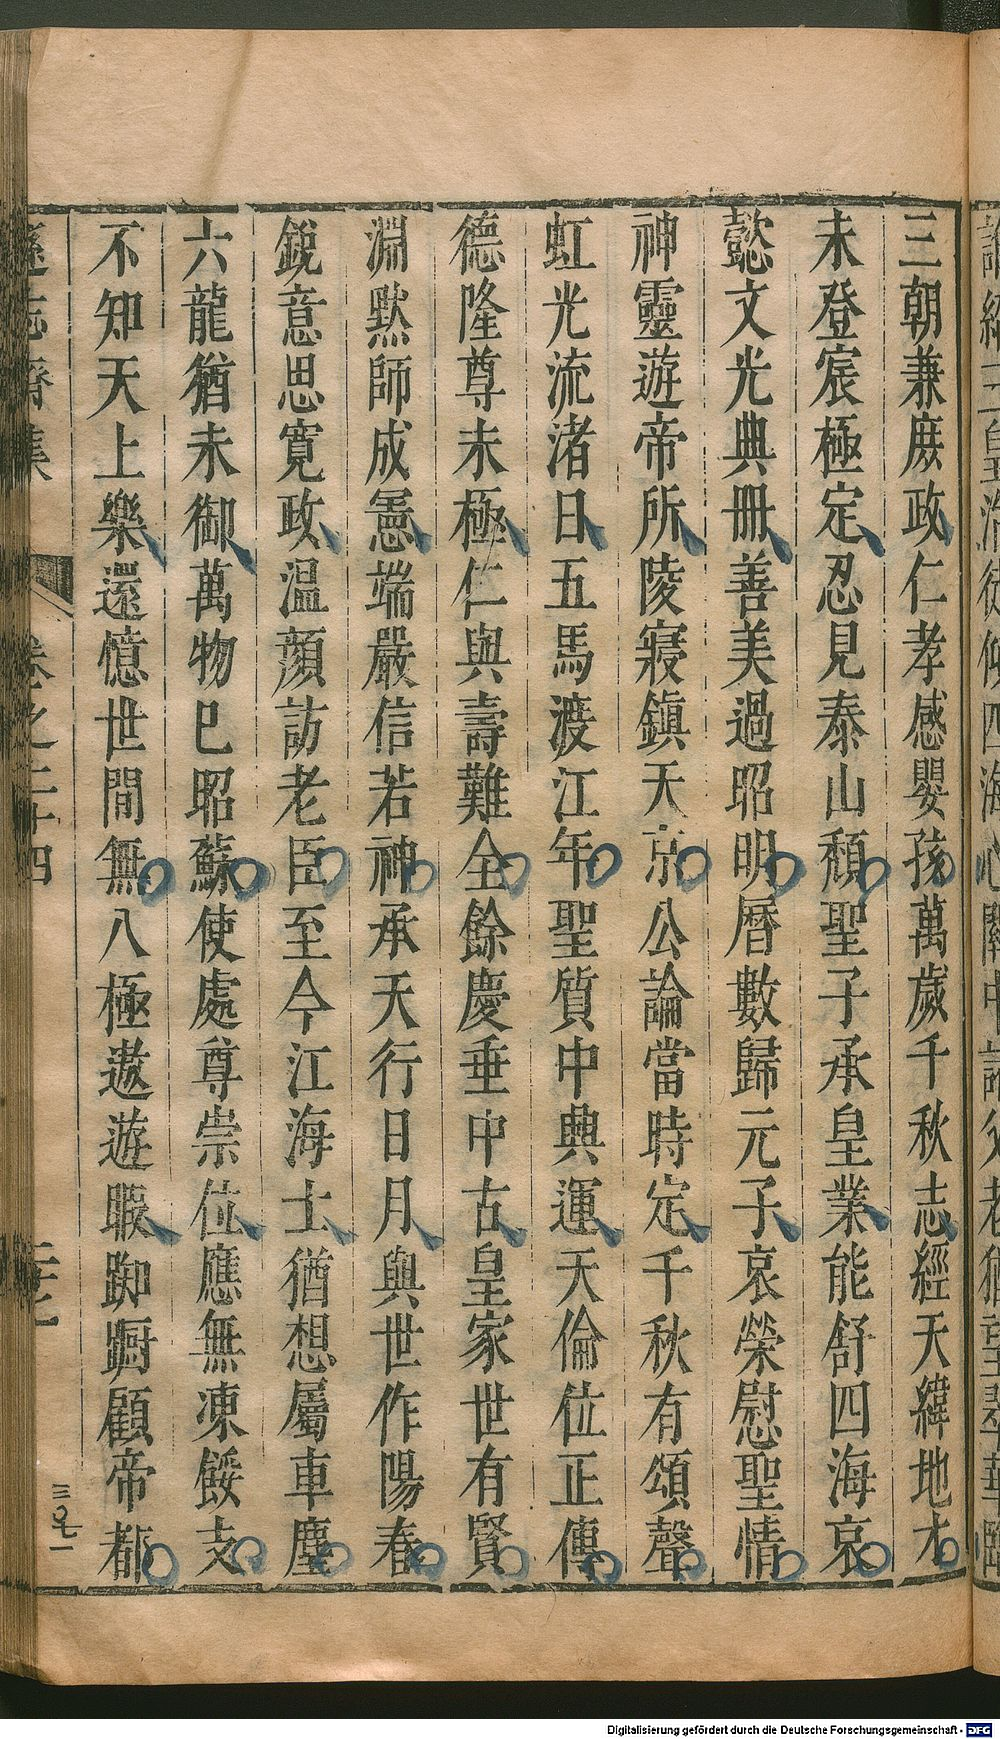 三朝兼庶政仁孝感嬰孩萬歲千秋志經天緯地才
未登宸極定忍見泰山頹聖子承皇業能舒四海哀
懿文光典冊善美過昭明曆數歸元子哀榮慰聖情
神靈遊帝所陵寢鎮天京公論當時定千秋有頌聲
虹光流渚日五馬渡江年聖質中興運天倫位正傳
德隆尊未極仁與壽難全餘慶垂中古皇家世有賢
淵默師成憲端嚴信若神承天行日月與世作陽春
銳意思寬政溫顏訪老臣至今江海士猶想屬車塵
六龍猶未御萬物已昭蘇使處尊崇位應無凍餒支
不知天上樂還憶世間無八極遨遊暇踟躕顧帝都
遜志齋集 卷之二十四
Digitalisierung gefördert durch die Deutsche Forschungsgemeinschaft - DFG